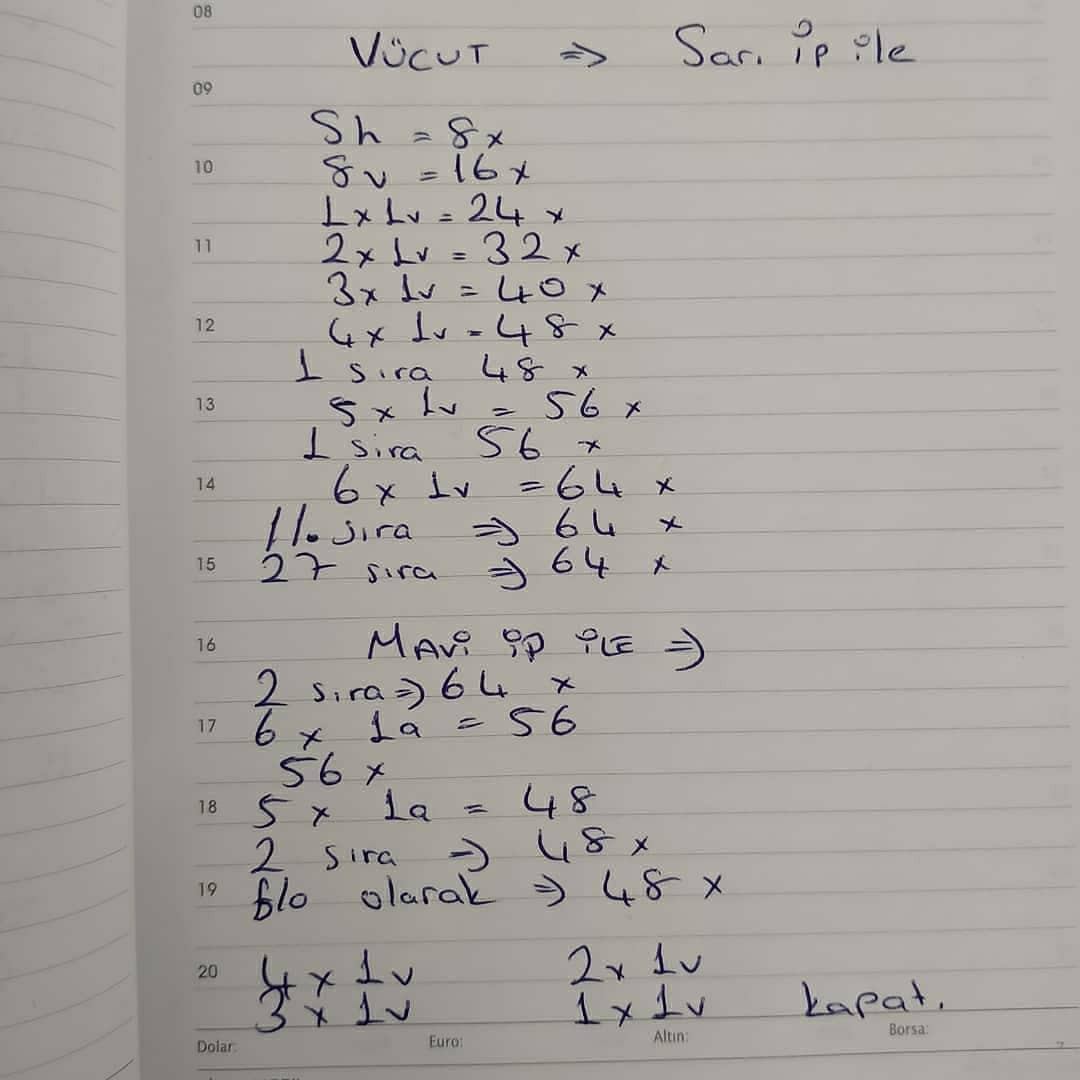 08
VÜCUT => Sarı ip ile
09
Sh = 8x
10
8v = 16x
1x1v = 24x
11
2x 1v = 32x
3x 1v = 40x
12
4x 1v = 48x
1 sıra 48x
13
5x 1v = 56x
1 sıra 56x
14
6x 1v = 64x
11. sıra => 64x
15
27 sıra => 64x
16
MAVİ İP İLE =>
2 sıra => 64x
17
6x 1a = 56
56x
18
5x 1a = 48
2 sıra => 48x
19
olarak => 48x
20
4x 1v 2x 1v
3x 1v 1x 1v kapat.
Dolar: Euro: Altın: Borsa: